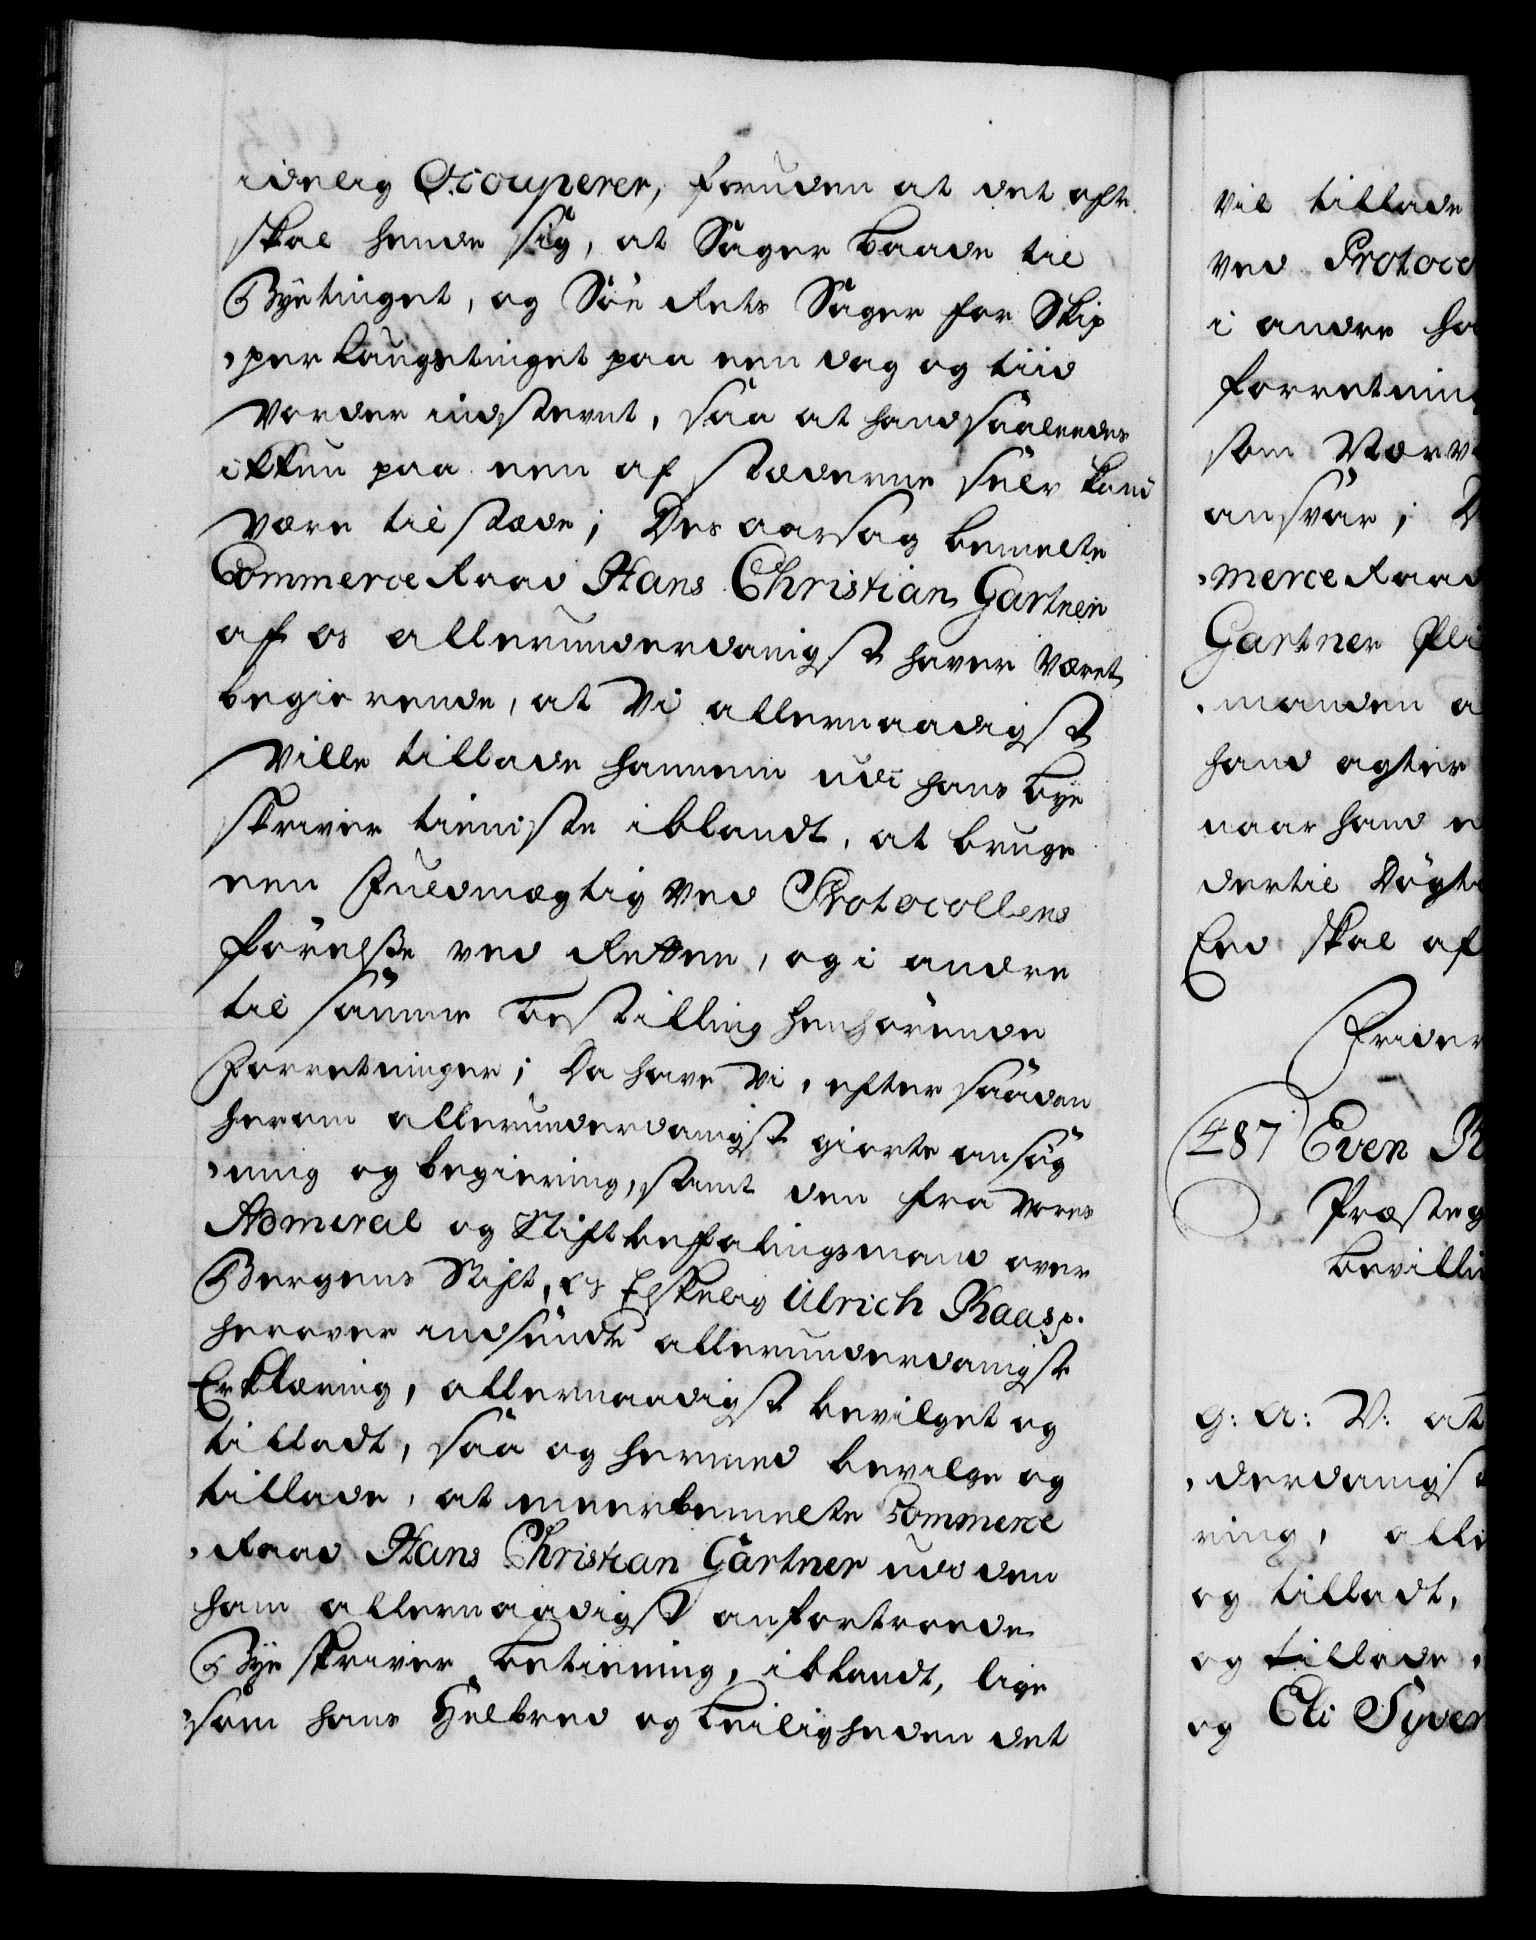 idelig Occuperer, foruden at det ofte
skal hende sig, at Sager baade til
Byetinget, og Söe Rets Sager for Skip
perlaugstinget paa een dag og tiid
vorder indstevnt, saa at hand saaleedes
ikkun paa een af stæderne selv kand
være tilstæde; Des aarsag bemelte
Commerce Raad Hans Christian Gartner
af os allerunderdanigst haver været
begierende, at Vi allernaadigst
ville tillade hannem udi hans bye
skriver tieniste iblandt, at bruge
een Fuldmægtig ved Protocollens
förelse ved Retten, og i andre
til samme bestilling henhörende
Forretninger; Da have Vi, efter saaden
herom allerunderdanigst giorte ansög
ning og begiering, samt den fra Vores
Admiral og Stiftbefalingsmand over
Bergens Stift, Os Elskelig Ulrich Kaas p.
herover indsendte allerunderdanigste
Erklæring, allernaadigst bevilget og
tilladt, saa og hermed bevilge og
tillade, at meerbemelte Commerce
Raad Hans Christian Gartner udi den
ham allernaadigst anfortroede
Bye skriver betiening, iblandt, lige
som hans Helbred og beiligheden det
vil tillade
ved Protoco
i andre ha
forretning
som
ansvar; D
merce Raad
Gartner
manden a
hand agter
naar hand e
dertil dygti
Eed skal af
Frider
487 Even R
Præsteg
bevilli
G: A: V: at
derdanigst
ring, alle
og tilladt,
og tillade,
og Eli Syver